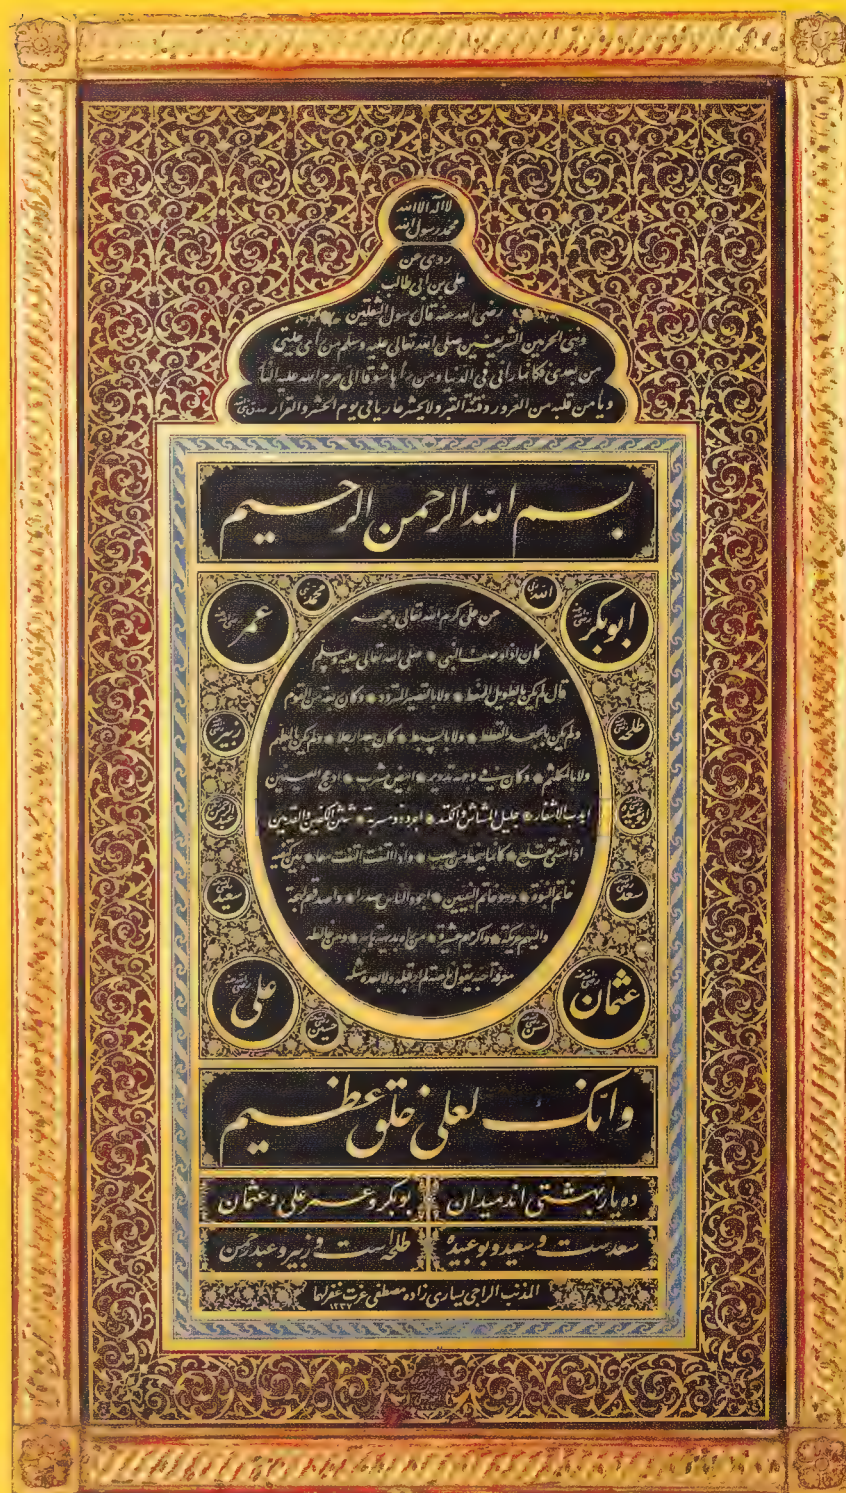 لا اله الا الله
محمد رسول الله
روى عن
على بن ابى طالب
رضى الله عنه قال رسول الثقلين
ونبى الحرمين الشريفين صلى الله تعالى عليه وسلم من راى حليتى
من بعدى فكانما رانى فى الدنيا ومن راها شوقا الى حرم الله عليه النار
ويامن قلبه من الغرور وفتنة القبر ولا يحشر عاريا فى يوم الحشر والقرار
بسم الله الرحمن الرحيم
الله
محمد
ابوبكر
عمر
عن على كرم الله تعالى وجهه
كان اذا وصف النبى صلى الله تعالى عليه وسلم
قال لم يكن بالطويل الممغط ولا بالقصير المتردد وكان ربعة من القوم
ولم يكن بالجعد القطط ولا بالسبط كان جعدا رجلا ولم يكن بالمطهم
ولا بالمكلثم وكان فى وجهه تدوير ابيض مشرب ادعج العينين
اهدب الاشفار جليل المشاش والكتد اجرد ذو مسربة شثن الكفين والقدمين
اذا مشى تقلع كانما ينحط من صبب واذا التفت التفت معا بين كتفيه
خاتم النبوة وهو خاتم النبيين اجود الناس صدرا واصدقهم لهجة
والينهم عريكة واكرمهم عشرة من راه بديهة هابه ومن خالطه
معرفة احبه يقول ناعته لم ار قبله ولا بعده مثله
طلحه
زبير
ابو عبيده
عبد الرحمن
سعد
سعيد
عثمان
على
حسن
حسين
وانك لعلى خلق عظيم
ده يار بهشتى اند ميدان بوبكر وعمر على وعثمان
سعدست و سعيد و بو عبيده طلحه است و زبير و عبد رحمن
المذنب الراجى يسارى زاده مصطفى عزت غفر لهما
١٢٣٧